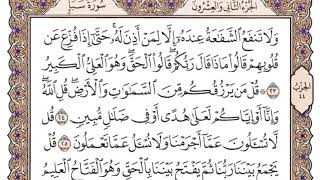 الجزء الثاني والعشرون سورة سبإ
وَلَا تَنفَعُ ٱلشَّفَٰعَةُ عِندَهُۥٓ إِلَّا لِمَنۡ أَذِنَ لَهُۥۚ حَتَّىٰٓ إِذَا فُزِّعَ عَن
قُلُوبِهِمۡ قَالُواْ مَاذَا قَالَ رَبُّكُمۡۖ قَالُواْ ٱلۡحَقَّۖ وَهُوَ ٱلۡعَلِيُّ ٱلۡكَبِيرُ
٢٣ ۞ قُلۡ مَن يَرۡزُقُكُم مِّنَ ٱلسَّمَٰوَٰتِ وَٱلۡأَرۡضِۖ قُلِ ٱللَّهُۖ
وَإِنَّآ أَوۡ إِيَّاكُمۡ لَعَلَىٰ هُدًى أَوۡ فِي ضَلَٰلٖ مُّبِينٖ ٢٤ قُل
لَّا تُسۡـَٔلُونَ عَمَّآ أَجۡرَمۡنَا وَلَا نُسۡـَٔلُ عَمَّا تَعۡمَلُونَ ٢٥ قُلۡ
يَجۡمَعُ بَيۡنَنَا رَبُّنَا ثُمَّ يَفۡتَحُ بَيۡنَنَا بِٱلۡحَقِّ وَهُوَ ٱلۡفَتَّاحُ ٱلۡعَلِيمُ
الحزب
٤٤